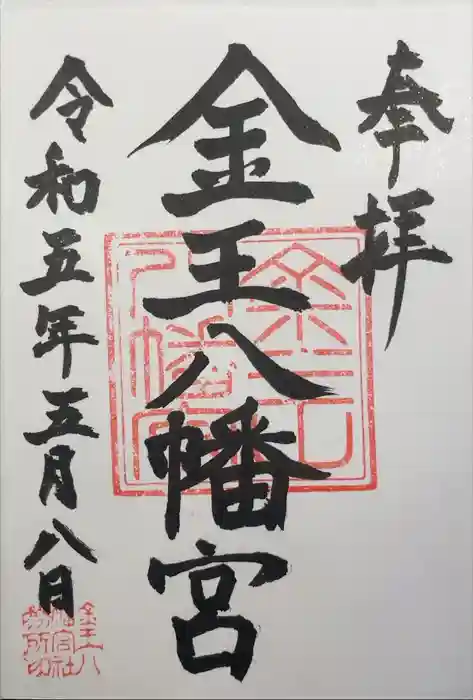 奉拝
金王八幡宮
令和五年五月八日
金王八幡宮
金王八
幡宮社
務所印